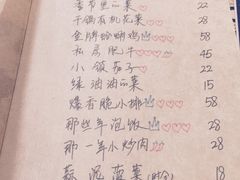 季节时蔬 22
干锅有机花菜 28
金牌蛤蜊鸡 58
私房肥牛 45
小饭茄子 22
绿油油的菜 15
爆香脆小排 58
那些年泡饭 28
那一年小炒肉 28
蒜泥菠菜 18